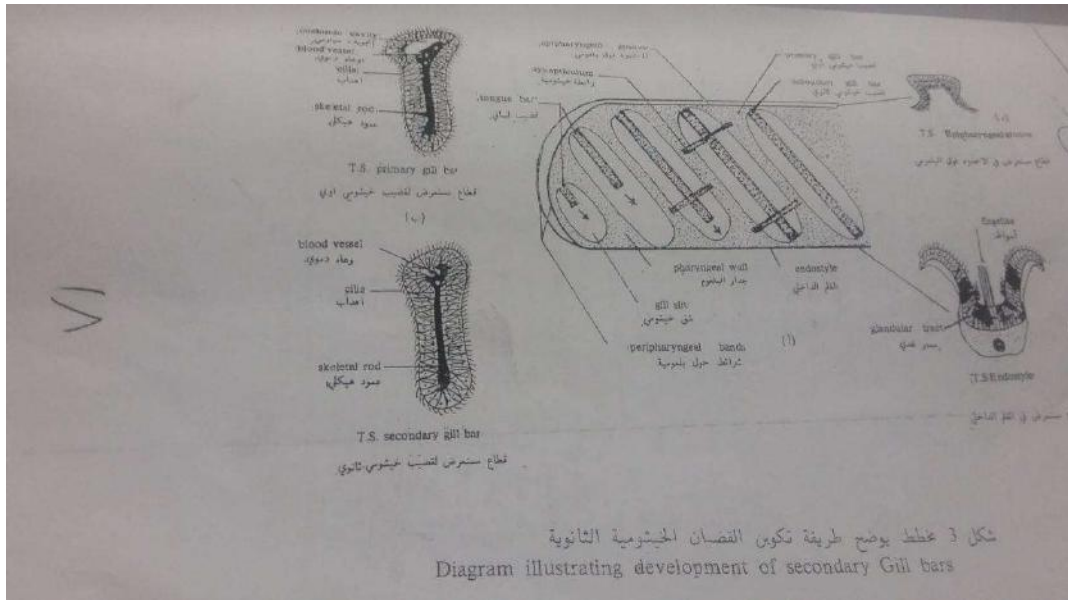 blood vessel
وعاء دموي
cilia
أهداب
skeletal rod
عمود هيكلي
T.S. primary gill bar
قطاع مستعرض لقضيب خيشومي اولي
(ب)
blood vessel
وعاء دموي
cilia
أهداب
skeletal rod
عمود هيكلي
T.S. secondary gill bar
قطاع مستعرض لقضيب خيشومي ثانوي
synapticulum
رابطة خيشومية
tongue bar
قضيب لساني
gill bar
قضيب خيشومي اولي
gill bar
قضيب خيشومي ثانوي
pharyngeal wall
جدار البلعوم
endostyle
القلم الداخلي
gill slit
شق خيشومي
peripharyngeal bands
شرائط حول بلعومية
(أ)
T.S. Epipharyngeal groove
قطاع مستعرض في الاخدود فوق البلعومي
flagella
أسواط
glandular tract
ممر غدي
T.S Endostyle
مستعرض في القلم الداخلي
شكل 3 مخطط يوضح طريقة تكوين القضبان الخيشومية الثانوية
Diagram illustrating development of secondary Gill bars